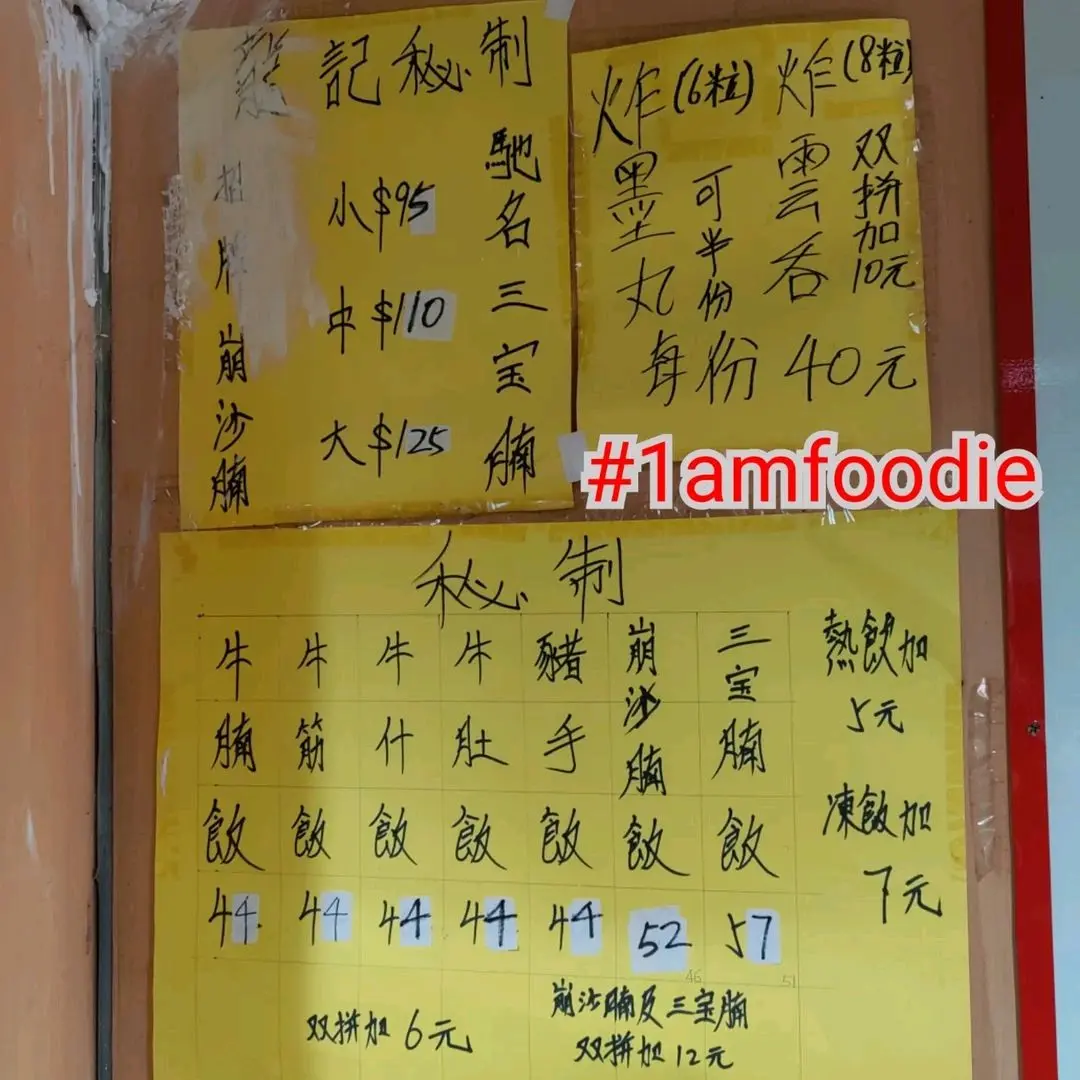 記秘制
馳名三宝腩
小$95
中$110
大$125
招牌崩沙腩
炸雲吞(8粒)
双拼加10元
炸墨丸(6粒)
可半份
每份40元
#1amfoodie
秘制
牛腩飯 44
牛筋飯 44
牛什飯 44
牛肚飯 44
豬手飯 44
崩沙腩飯 52
三宝腩飯 57
46
51
熱飲加
5元
凍飲加
7元
双拼加6元
崩沙腩及三宝腩
双拼加12元